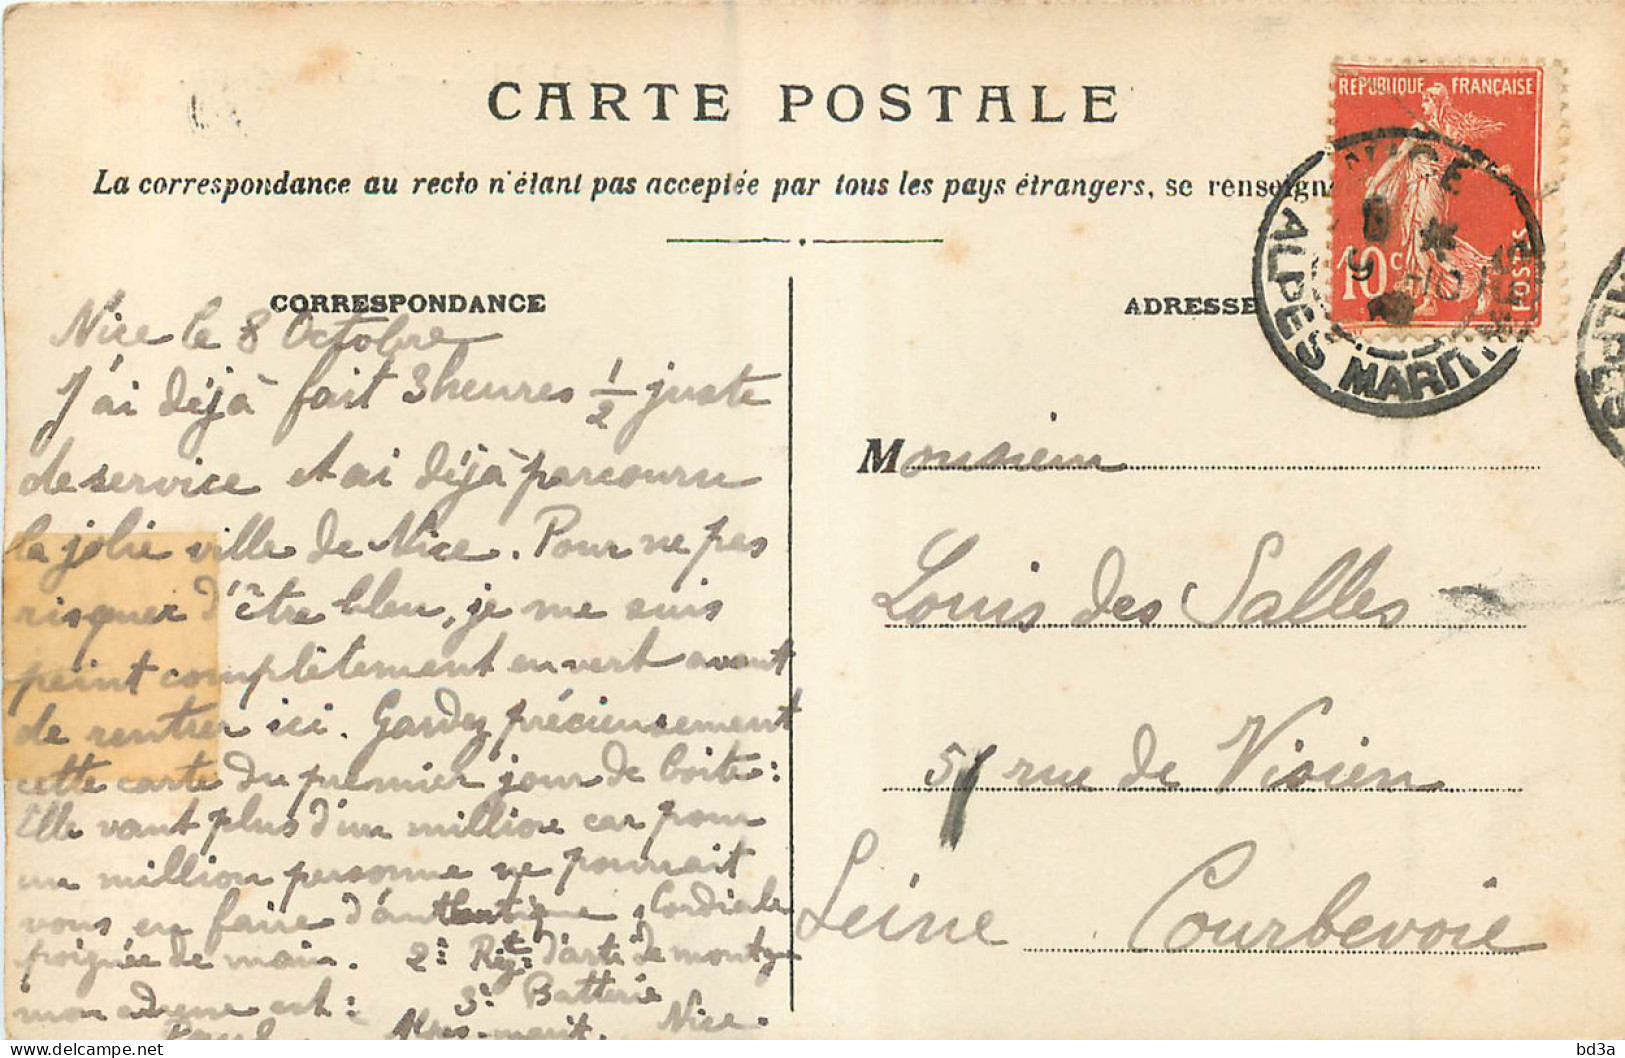 CARTE POSTALE
La correspondance au recto n'étant pas acceptée par tous les pays étrangers, se renseign
RÉPUBLIQUE FRANÇAISE
10c
POSTES
NICE
ALPES MARIT
CORRESPONDANCE
Nice le 8 Octobre
J'ai déjà fait 3 heures 1/2 juste
de service et ai déjà parcouru
la jolie ville de Nice. Pour ne pas
risquer d'être bleu, je me suis
peint complètement en vert avant
de rentrer ici. Gardez précieusement
cette carte du premier jour de boite:
Elle vaut plus d'un million car pour
un million personne ne pourrait
vous en faire d'authentique. Cordiale
poignée de main. 2e Régt d'arte de montagne
mon adresse est: 3e Batterie
Paul Alpes-marit. Nice.
ADRESSE
Monsieur
Louis des Salles
51 rue de Visien
Seine Courbevoie
bd3a